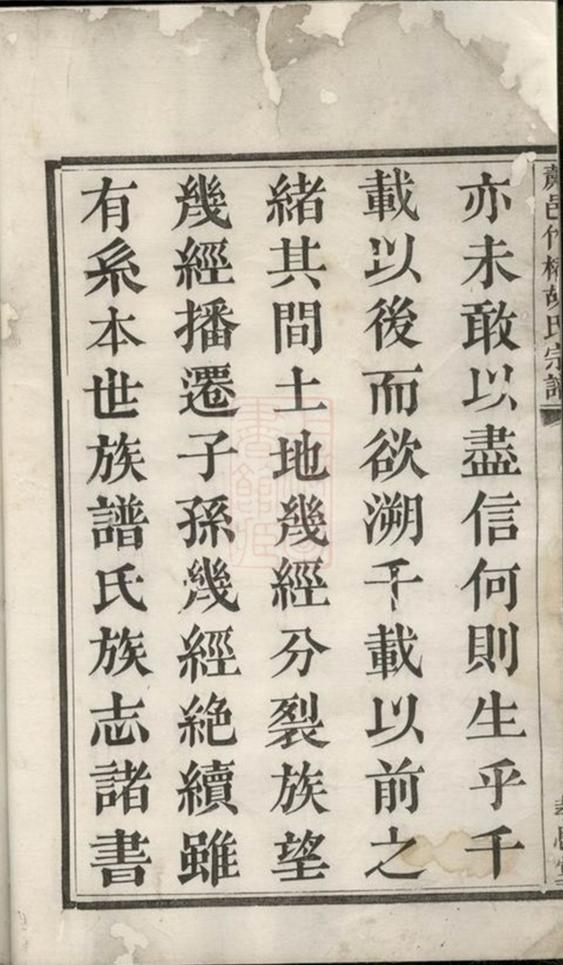 亦未敢以盡信何則生乎千
載以後而欲溯千載以前之
緒其間土地幾經分裂族望
幾經播遷子孫幾經絶續雖
有系本世族譜氏族志諸書
氏宗譜